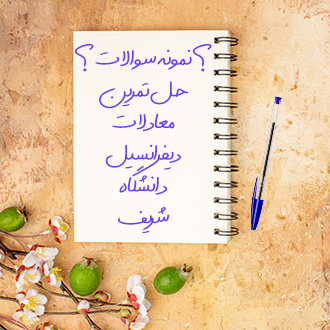 ؟ نمونه سوالات ؟
حل تمرین
معادلات
دیفرانسیل
دانشگاه
شریف